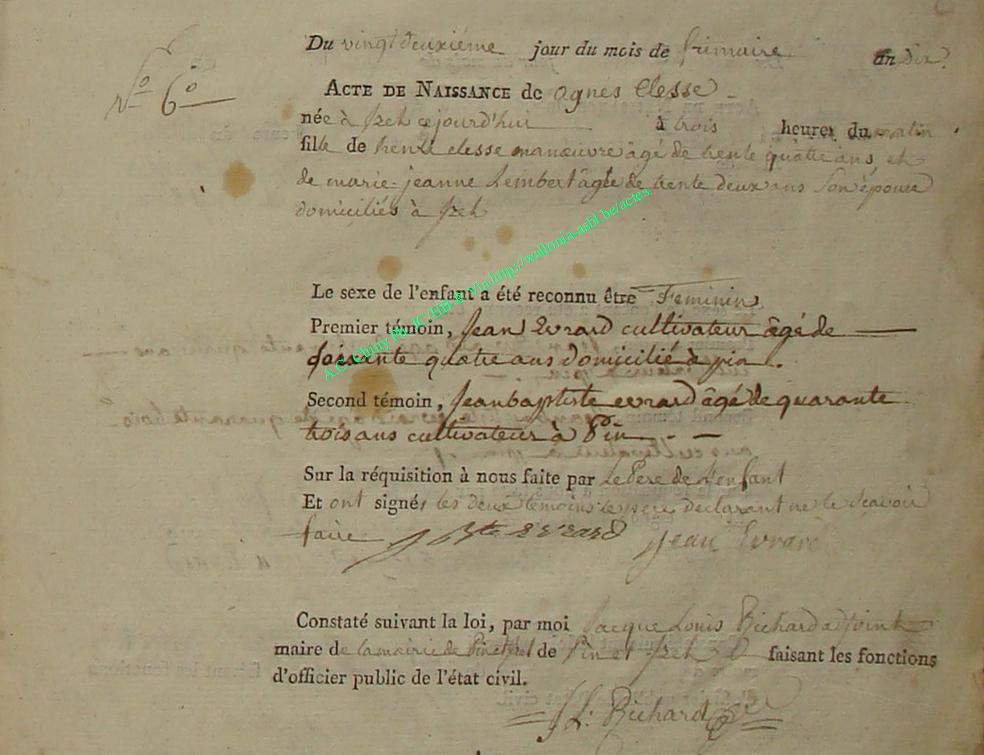 Du vingt deuxiéme jour du mois de frimaire an dix.
N° 6°
ACTE DE NAISSANCE de agnes Clesse
née à Izel cejourd'hui à trois heures du matin
fille de henri clesse manœuvre âgé de trente quatre ans et
de marie-jeanne Lembert âgée de trente deux ans son épouse
domiciliés à Izel
A.C. Chiny via http://wallonia-asbl.be/actes
Le sexe de l'enfant a été reconnu être Feminin
Premier témoin, Jean Evrard cultivateur âgé de
soixante quatre ans domicilié à pin.
Second témoin, Jeanbaptiste evrard âgé de quarante
trois ans cultivateur à Pin
Sur la réquisition à nous faite par Le Pere de L'enfant
Et ont signés les deux temoins le pere declarant ne le scavoir
faire J Bte evrard Jean Evrard
Constaté suivant la loi, par moi Jacque Louis Richard adjoint
maire de la mairie de Pinetizel de Pin et Izel faisant les fonctions
d'officier public de l'état civil.
J L. Richard